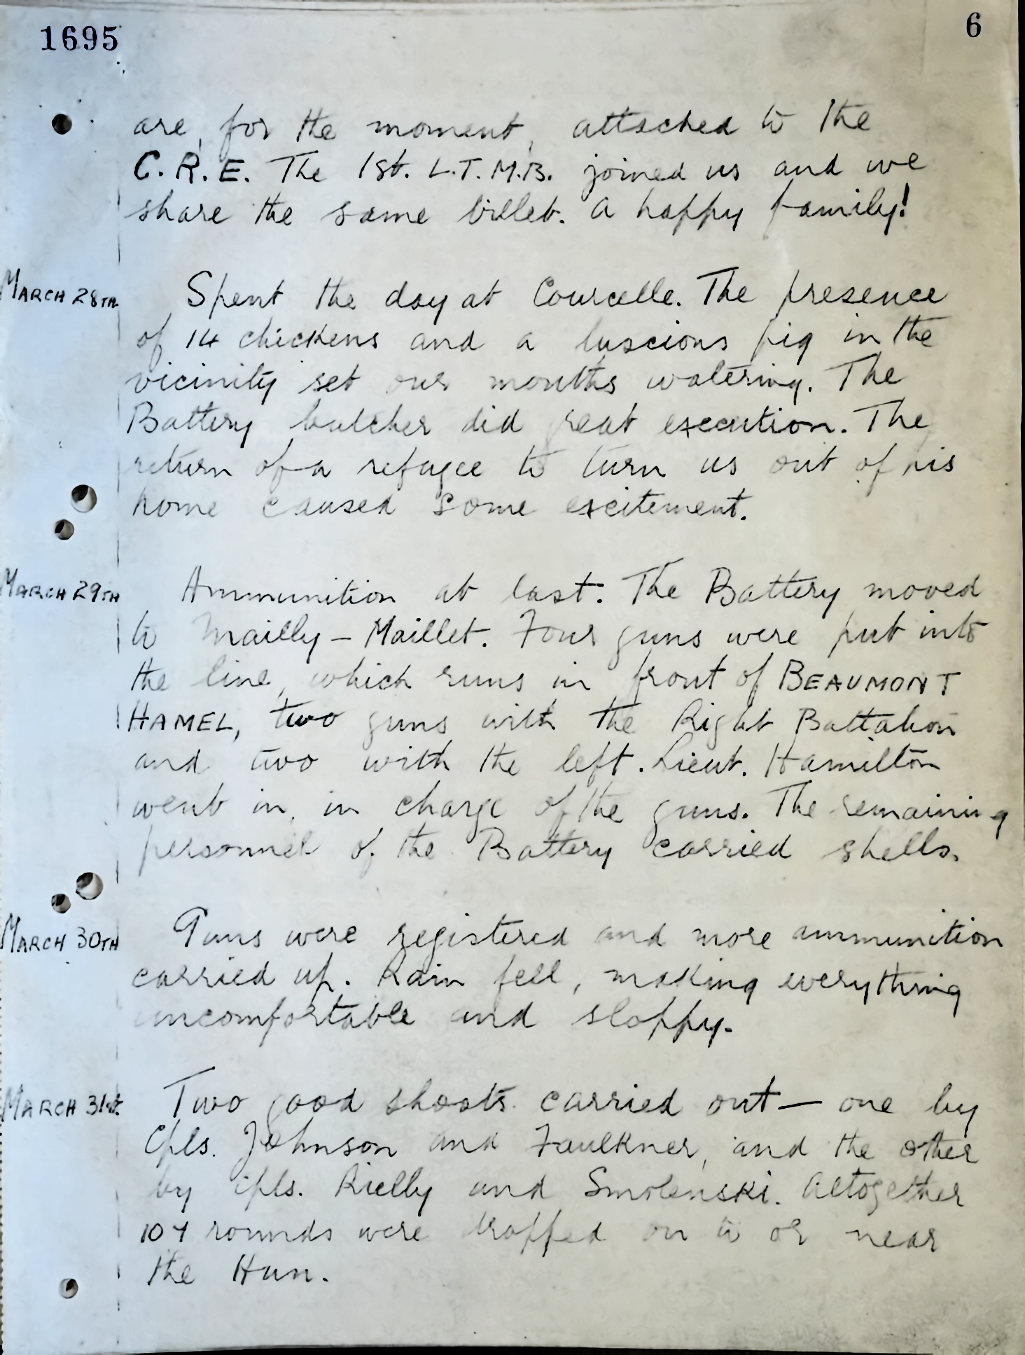 1695
6
are, for the moment, attached to the
C.R.E. The 1st. L.T.M.B. joined us and we
share the same billet. A happy family!
MARCH 28TH Spent the day at Courcelle. The presence
of 14 chickens and a luscious pig in the
vicinity set our mouths watering. The
Battery butcher did great execution. The
return of a refugee to turn us out of his
home caused some excitement.
MARCH 29TH Ammunition at last. The Battery moved
to Mailly-Maillet. Four guns were put into
the line, which runs in front of BEAUMONT
HAMEL, two guns with the Right Battalion
and two with the left. Lieut. Hamilton
went in, in charge of the guns. The remaining
personnel of the Battery carried shells.
MARCH 30TH Guns were registered and more ammunition
carried up. Rain fell, making everything
uncomfortable and sloppy.
MARCH 31st. Two good shoots carried out — one by
Cpls. Johnson and Faulkner, and the other
by Cpls. Rielly and Smolenski. Altogether
rounds were dropped on to or near
the Hun.